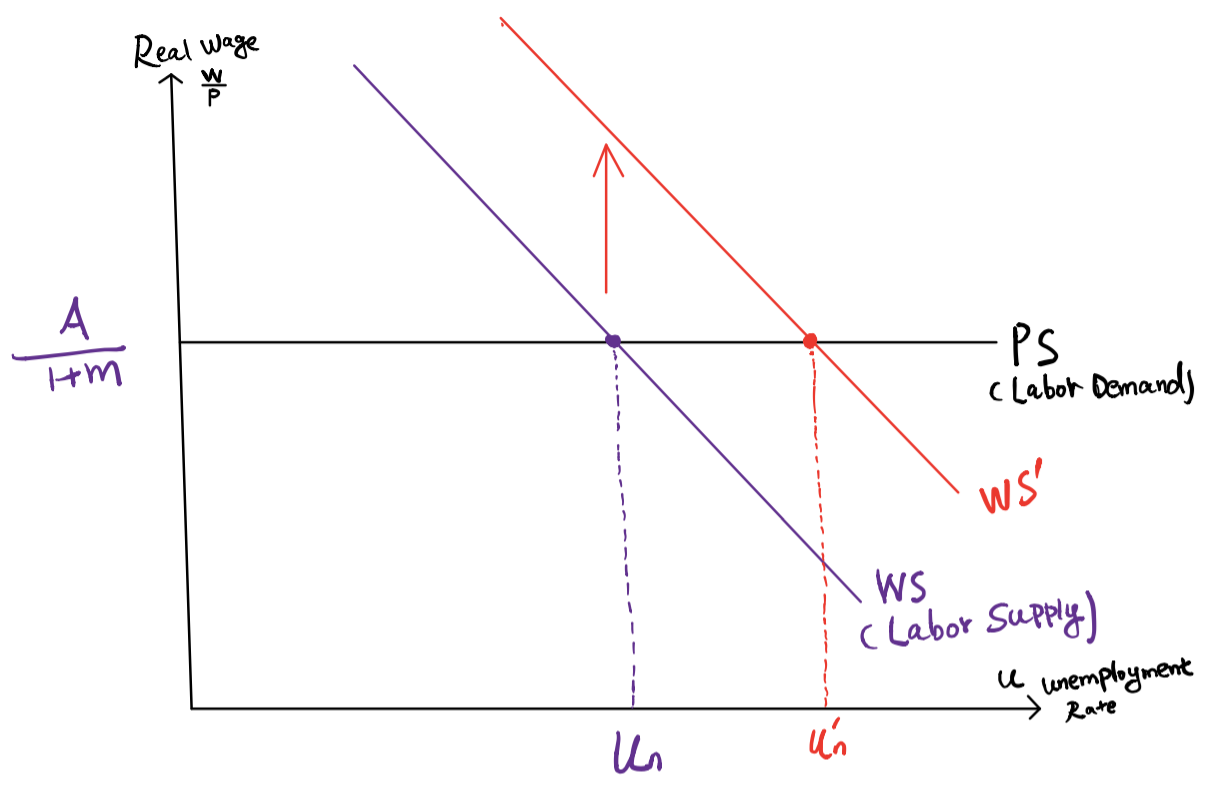 Real Wage
W
P
A
1+m
PS
(Labor Demand)
WS'
WS
(Labor Supply)
u unemployment
Rate
Un
U'n